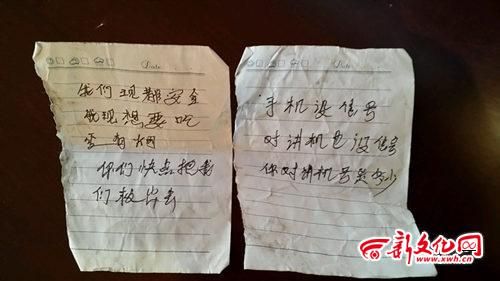 Date
我们现都安全
我现想要吃
有烟
你们快点把我
们救出去
Date
手机没信号
对讲机也没信号
你对讲机号是多少
新文化网
www.xwh.cn